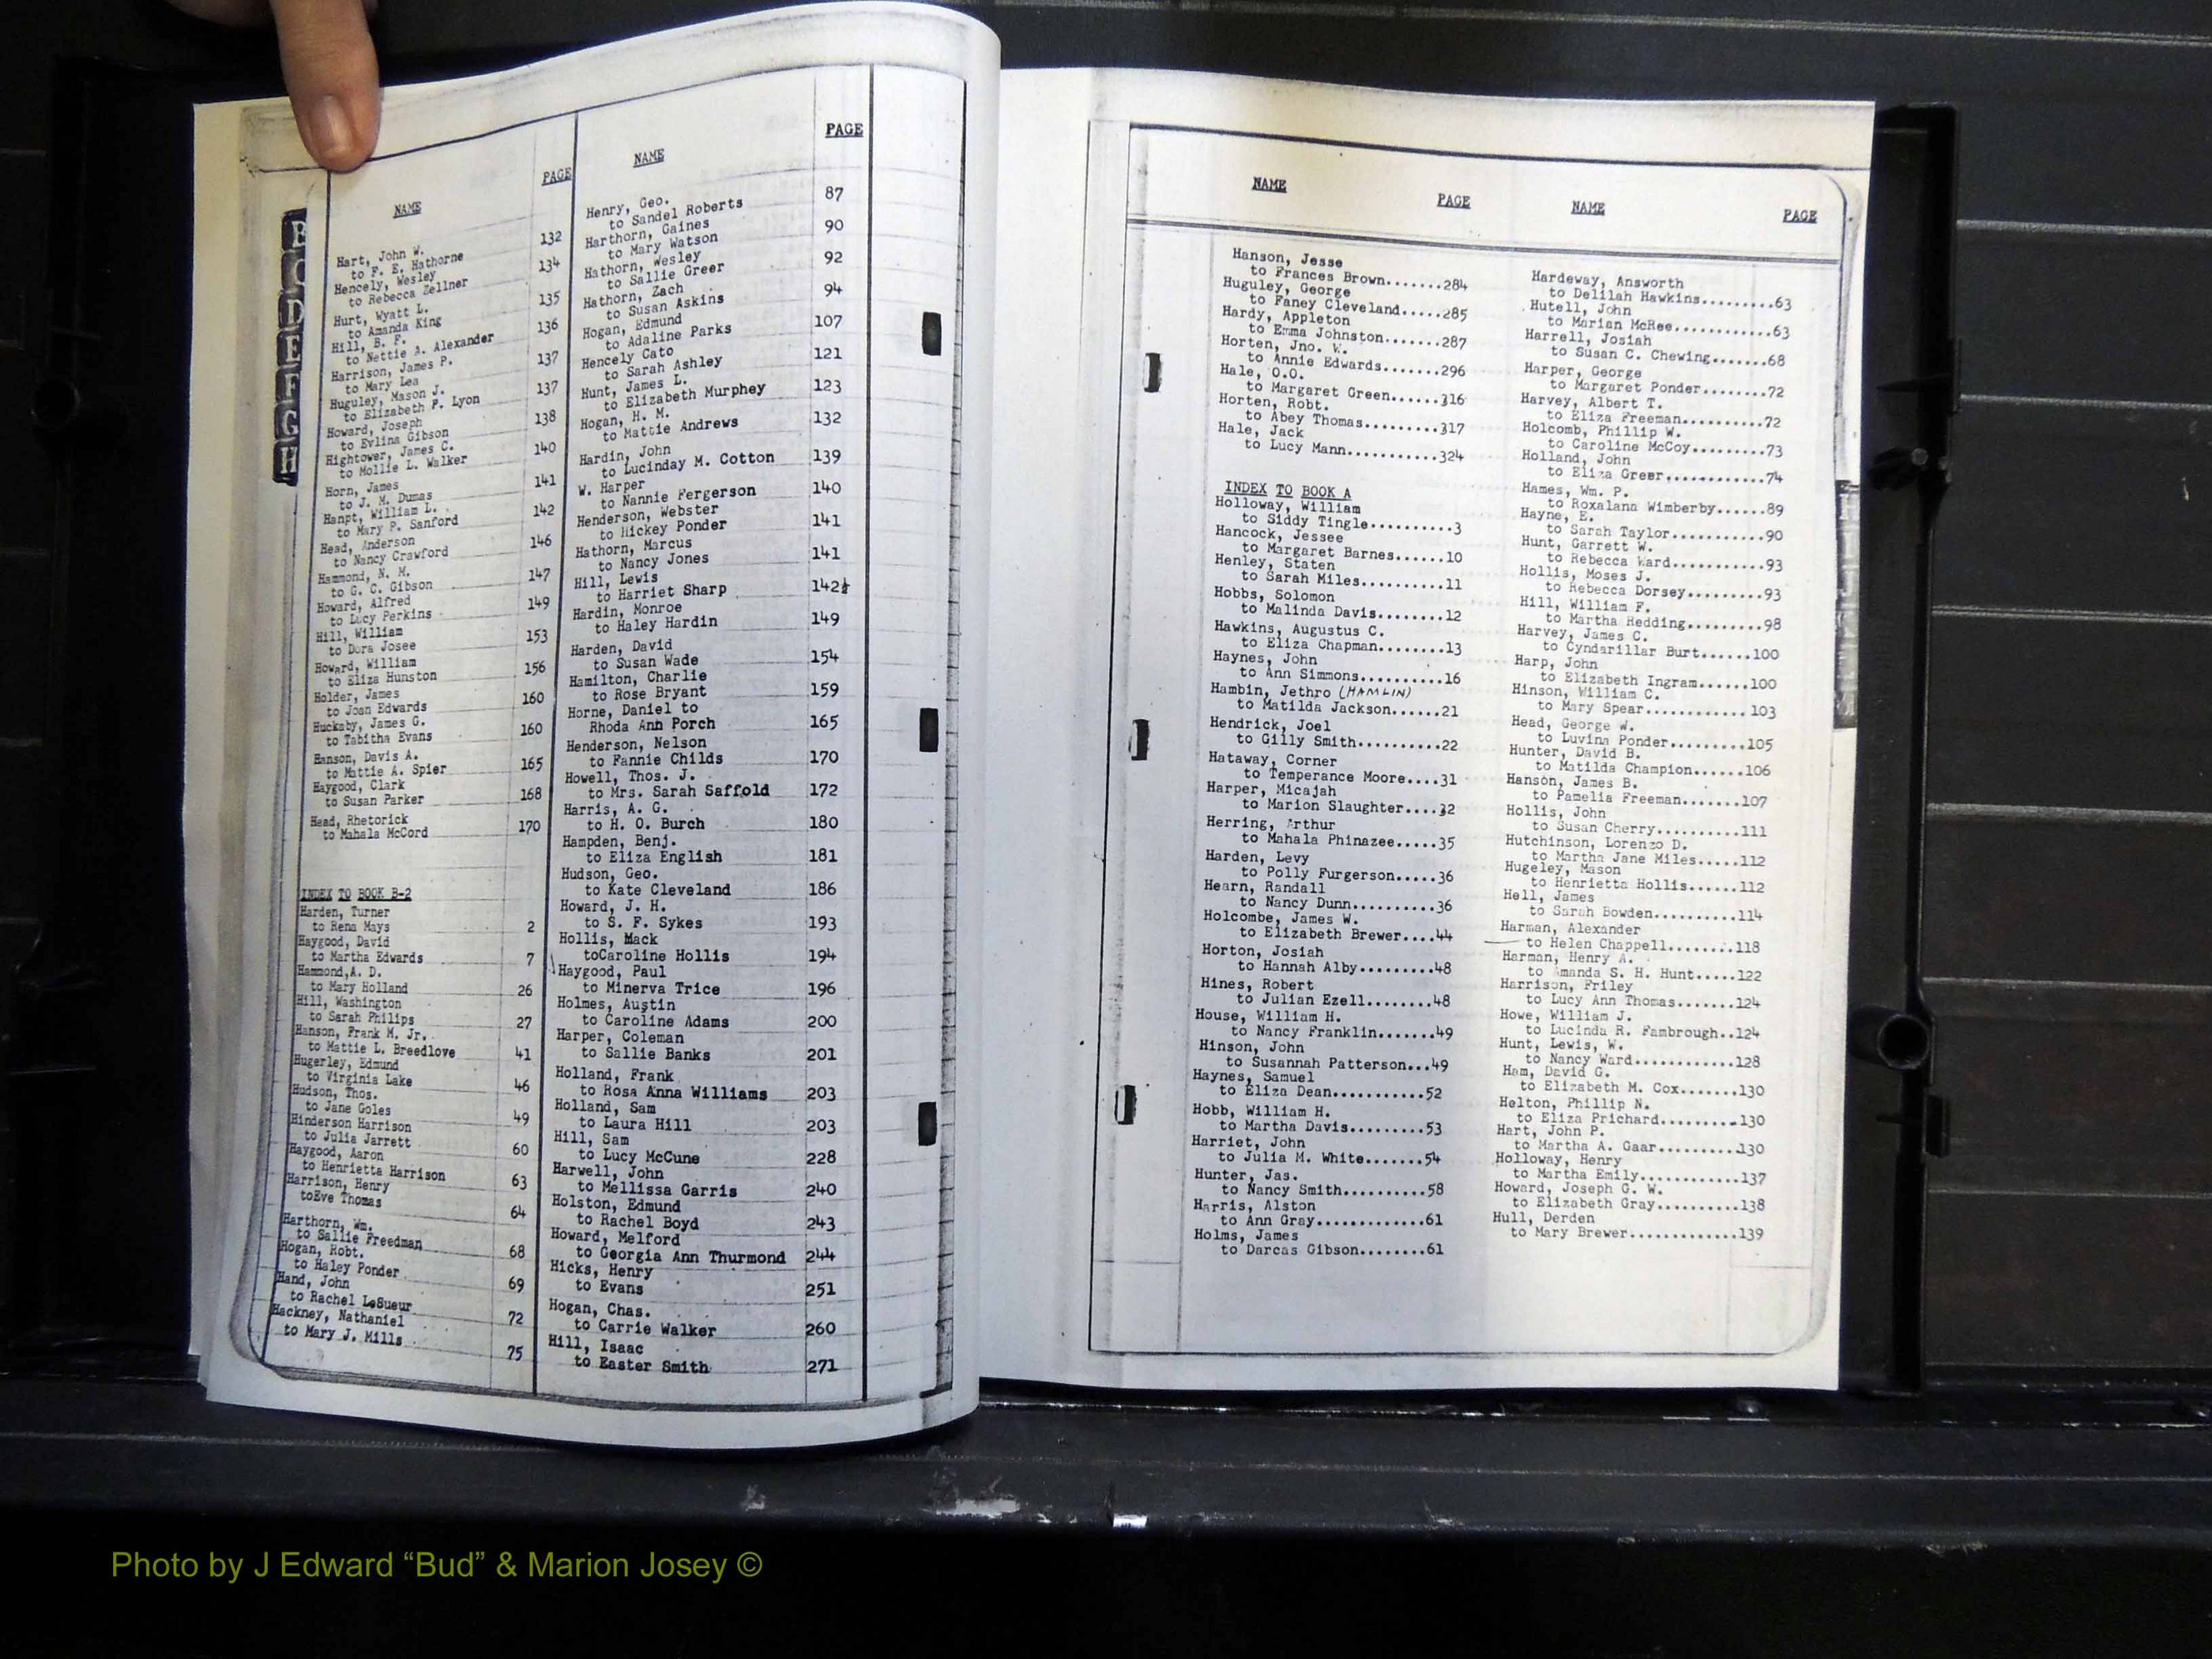 B
C
D
E
F
G
H
NAME
PAGE
Hart, John W.
to F. E. Hathorne 132
Hencely, Wesley
to Rebecca Zellner 134
Hurt, Wyatt L.
to Amanda King 135
Hill, B. F.
to Nettie A. Alexander 136
Harrison, James P.
to Mary Lea 137
Huguley, Mason J.
to Elizabeth P. Lyon 137
Howard, Joseph
to Evlina Gibson 138
Hightower, James C.
to Mollie L. Walker 140
Horn, James
to J. M. Dumas 141
Hanpt, William L.
to Mary P. Sanford 142
Head, Anderson
to Nancy Crawford 146
Hammond, N. M.
to G. C. Gibson 147
Howard, Alfred
to Lucy Perkins 149
Hill, William
to Dora Josee 153
Howard, William
to Eliza Hunston 156
Holder, James
to Joan Edwards 160
Huckaby, James G.
to Tabitha Evans 160
Hanson, Davis A.
to Mattie A. Spier 165
Haygood, Clark
to Susan Parker 168
Head, Rhetorick
to Mahala McCord 170
INDEX TO BOOK B-2
Harden, Turner
to Rena Mays 2
Haygood, David
to Martha Edwards 7
Hammond,A. D.
to Mary Holland 26
Hill, Washington
to Sarah Philips 27
Hanson, Frank M. Jr.
to Mattie L. Breedlove 41
Hugerley, Edmund
to Virginia Lake 46
Hudson, Thos.
to Jane Goles 49
Hinderson Harrison
to Julia Jarrett 60
Haygood, Aaron
to Henrietta Harrison 63
Harrison, Henry
toEve Thomas 64
Harthorn, Wm.
to Sallie Freedman 68
Hogan, Robt.
to Haley Ponder 69
Hand, John
to Rachel LeSueur 72
Hackney, Nathaniel
to Mary J. Mills 75
NAME
PAGE
Henry, Geo.
to Sandel Roberts 87
Harthorn, Gaines
to Mary Watson 90
Hathorn, Wesley
to Sallie Greer 92
Hathorn, Zach
to Susan Askins 94
Hogan, Edmund
to Adaline Parks 107
Hencely Cato
to Sarah Ashley 121
Hunt, James L.
to Elizabeth Murphey 123
Hogan, H. M.
to Mattie Andrews 132
Hardin, John
to Lucinday M. Cotton 139
W. Harper
to Nannie Fergerson 140
Henderson, Webster
to Hickey Ponder 141
Hathorn, Marcus
to Nancy Jones 141
Hill, Lewis
to Harriet Sharp 142½
Hardin, Monroe
to Haley Hardin 149
Harden, David
to Susan Wade 154
Hamilton, Charlie
to Rose Bryant 159
Horne, Daniel to
Rhoda Ann Porch 165
Henderson, Nelson
to Fannie Childs 170
Howell, Thos. J.
to Mrs. Sarah Saffold 172
Harris, A. G.
to H. O. Burch 180
Hampden, Benj.
to Eliza English 181
Hudson, Geo.
to Kate Cleveland 186
Howard, J. H.
to S. F. Sykes 193
Hollis, Mack
toCaroline Hollis 194
Haygood, Paul
to Minerva Trice 196
Holmes, Austin
to Caroline Adams 200
Harper, Coleman
to Sallie Banks 201
Holland, Frank
to Rosa Anna Williams 203
Holland, Sam
to Laura Hill 203
Hill, Sam
to Lucy McCune 228
Harwell, John
to Mellissa Garris 240
Holston, Edmund
to Rachel Boyd 243
Howard, Melford
to Georgia Ann Thurmond 244
Hicks, Henry
to Evans 251
Hogan, Chas.
to Carrie Walker 260
Hill, Isaac
to Easter Smith 271
NAME
PAGE
Hanson, Jesse
to Frances Brown.......284
Huguley, George
to Faney Cleveland.....285
Hardy, Appleton
to Emma Johnston.......287
Horten, Jno. W.
to Annie Edwards.......296
Hale, O.O.
to Margaret Green......316
Horten, Robt.
to Abey Thomas.........317
Hale, Jack
to Lucy Mann...........324
INDEX TO BOOK A
Holloway, William
to Siddy Tingle..........3
Hancock, Jessee
to Margaret Barnes......10
Henley, Staten
to Sarah Miles..........11
Hobbs, Solomon
to Malinda Davis........12
Hawkins, Augustus C.
to Eliza Chapman........13
Haynes, John
to Ann Simmons..........16
Hambin, Jethro (HAMLIN)
to Matilda Jackson......21
Hendrick, Joel
to Gilly Smith..........22
Hataway, Corner
to Temperance Moore....31
Harper, Micajah
to Marion Slaughter....32
Herring, Arthur
to Mahala Phinazee.....35
Harden, Levy
to Polly Furgerson.....36
Hearn, Randall
to Nancy Dunn..........36
Holcombe, James W.
to Elizabeth Brewer....44
Horton, Josiah
to Hannah Alby.........48
Hines, Robert
to Julian Ezell........48
House, William H.
to Nancy Franklin.......49
Hinson, John
to Susannah Patterson...49
Haynes, Samuel
to Eliza Dean...........52
Hobb, William H.
to Martha Davis.........53
Harriet, John
to Julia M. White.......54
Hunter, Jas.
to Nancy Smith..........58
Harris, Alston
to Ann Gray.............61
Holms, James
to Darcas Gibson........61
NAME
PAGE
Hardeway, Answorth
to Delilah Hawkins.........63
Hutell, John
to Marian McRee............63
Harrell, Josiah
to Susan C. Chewing.......68
Harper, George
to Margaret Ponder........72
Harvey, Albert T.
to Eliza Freeman..........72
Holcomb, Phillip W.
to Caroline McCoy.........73
Holland, John
to Eliza Greer............74
Hames, Wm. P.
to Roxalana Wimberby......89
Hayne, E.
to Sarah Taylor...........90
Hunt, Garrett W.
to Rebecca Ward...........93
Hollis, Moses J.
to Rebecca Dorsey.........93
Hill, William F.
to Martha Redding.........98
Harvey, James C.
to Cyndarillar Burt......100
Harp, John
to Elizabeth Ingram......100
Hinson, William C.
to Mary Spear............103
Head, George W.
to Luvina Ponder.........105
Hunter, David B.
to Matilda Champion......106
Hanson, James B.
to Pamelia Freeman.......107
Hollis, John
to Susan Cherry..........111
Hutchinson, Lorenzo D.
to Martha Jane Miles.....112
Hugeley, Mason
to Henrietta Hollis......112
Hell, James
to Sarah Bowden..........114
Harman, Alexander
to Helen Chappell........118
Harman, Henry A.
to Amanda S. H. Hunt.....122
Harrison, Friley
to Lucy Ann Thomas.......124
Howe, William J.
to Lucinda R. Fambrough..124
Hunt, Lewis, W.
to Nancy Ward............128
Ham, David G.
to Elizabeth M. Cox.......130
Helton, Phillip N.
to Eliza Prichard.........130
Hart, John P.
to Martha A. Gaar.........130
Holloway, Henry
to Martha Emily...........137
Howard, Joseph G. W.
to Elizabeth Gray.........138
Hull, Derden
to Mary Brewer............139
Photo by J Edward “Bud” & Marion Josey ©